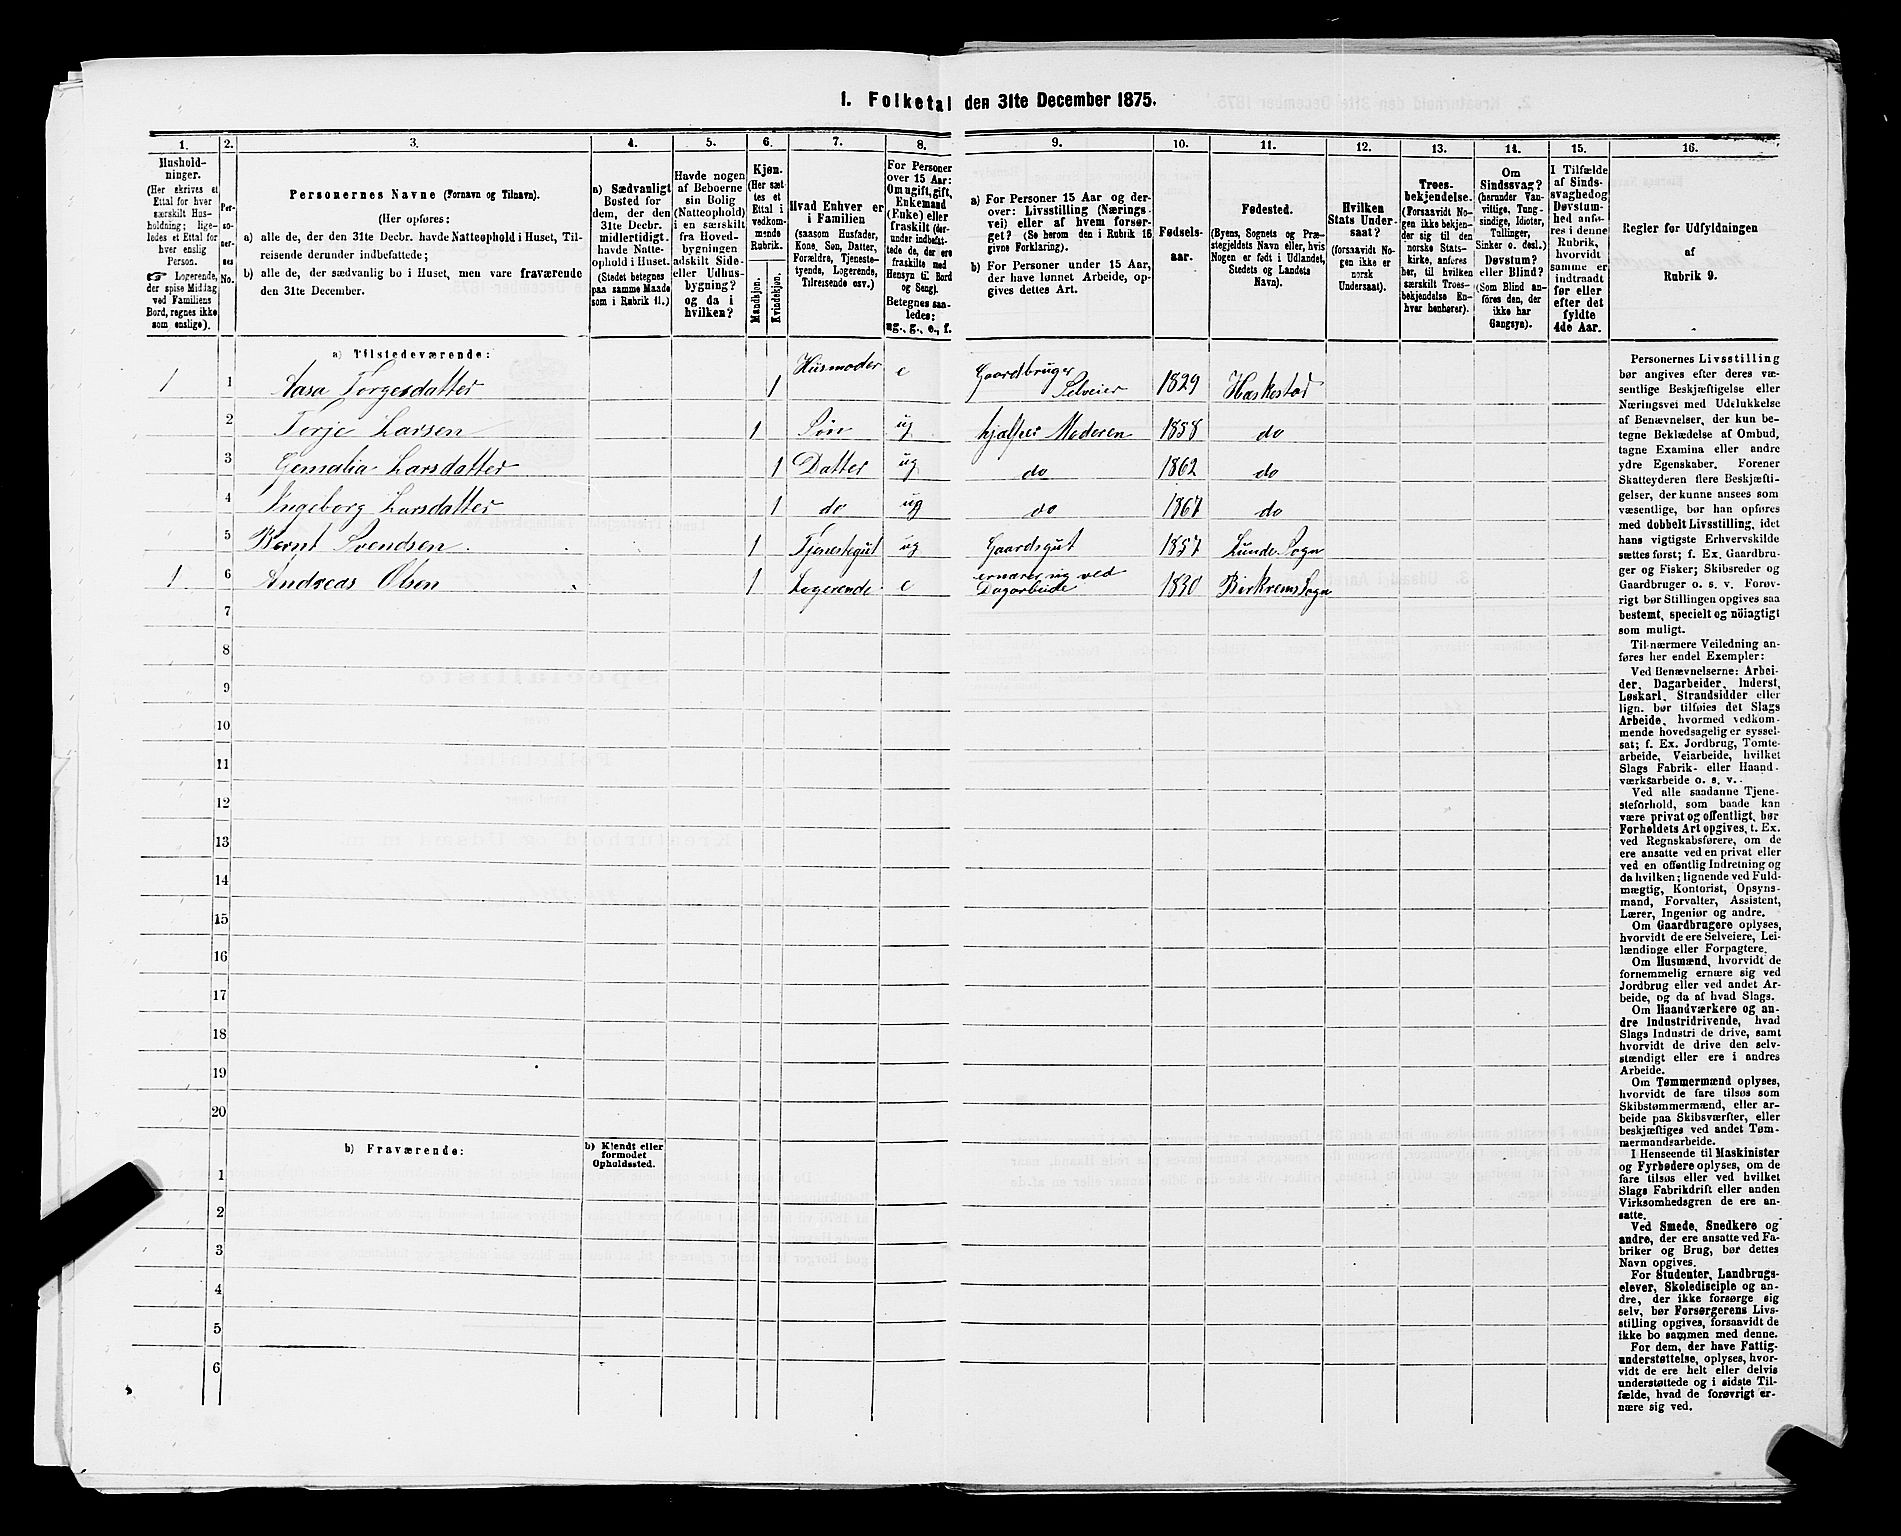 1. Folketal den 31te December 1875.
1. 2. 3. 4. 5. 6. 7. 8. 9. 10. 11. 12. 13. 14. 15. 16.
Hushold-
ninger.
(Her skrives et
Ettal for hver
særskilt Hus-
holdning; lige-
ledes et Ettal for
hver enslig
Person.
☞ Logerende,
der spise Middag
ved Familiens
Bord, regnes ikke
som enslige).
Per-
so-
ner-
nes
No.
Personernes Navne (Fornavn og Tilnavn).
(Her opføres:
a) alle de, der den 31te Decbr. havde Natteophold i Huset, Til-
reisende derunder indbefattede;
b) alle de, der sædvanlig bo i Huset, men vare fraværende
den 31te December.
a) Sædvanligt
Bosted for
dem, der den
31te Decbr.
midlertidigt
havde Natte-
ophold i Huset.
(Stedet betegnes
paa samme Maade
som i Rubrik 11.)
Havde nogen
af Beboerne
sin Bolig
(Natteophold)
i en særskilt
fra Hoved-
bygningen
adskilt Side-
eller Udhus-
bygning?
og da i
hvilken?
Kjøn.
(Her sæt-
tes et
Ettal i
vedkom-
mende
Rubrik.
Mandkjøn.
Kvindekjøn.
Hvad Enhver er
i Familien
(saasom Husfader,
Kone, Søn, Datter,
Forældre, Tjeneste-
tyende, Logerende,
Tilreisende osv.)
For Personer
over 15 Aar:
Om ugift, gift,
Enkemand
(Enke) eller
fraskilt (der-
under indbefat-
tede de, der ere
fraskilte med
Hensyn til Bord
og Seng).
Betegnes saa-
ledes:
ug., g., e., f.
a) For Personer 15 Aar og der-
over: Livsstilling (Nærings-
vei) eller af hvem forsør-
get? (Se herom den i Rubrik 16
givne Forklaring).
b) For Personer under 15 Aar,
der have lønnet Arbeide, op-
gives dettes Art.
Fødsels-
aar.
Fødested.
(Byens, Sognets og Præ-
stegjeldets Navn eller, hvis
Nogen er født i Udlandet,
Stedets og Landets
Navn).
Hvilken
Stats Under-
saat?
(forsaavidt No-
gen ikke er
norsk
Undersaat).
Troes-
bekjendelse.
(Forsaavidt No-
gen ikke bekjen-
der sig til den
norske Stats-
kirke, anføres
her, til hvilken
særskilt Troes-
bekjendelse En-
hver henhører).
Om
Sindssvag?
(herunder Van-
vittige, Tung-
sindige, Idioter,
Tullinger,
Sinker o. desl.)
Døvstum?
eller Blind?
(Som Blind an-
føres den, der
ikke har
Gangsyn).
I Tilfælde
af Sinds-
svaghed og
Døvstum-
hed anfø-
res i denne
Rubrik,
hvorvidt
samme er
indtraadt
før eller
efter det
fyldte
4de Aar.
Regler for Udfyldningen
af
Rubrik 9.
a) Tilstedeværende:
1 1 Aasa Torgersdatter 1 Husmoder e Gaardbruger Selveier 1829 Hæskestad
2 Terje Larsen 1 Søn ug hjælper Moderen 1858 do
3 Gemalia Larsdatter 1 Datter ug do 1862 do
4 Ingeborg Larsdatter 1 do ug do 1867 do
5 Bernt Svendsen 1 Tjenestegut ug Gaardsgut 1857 Lunde Sogn
1 6 Andreas Olsen 1 Logerende e ernærer sig ved Dagarbeide 1830 Birkrems Sogn
7
8
9
10
11
12
13
14
15
16
17
18
19
20
b) Fraværende:
b) Kjendt eller
formodet
Opholdssted.
1
2
3
4
5
6
Personernes Livsstilling
bør angives efter deres væ-
sentlige Beskjæftigelse eller
Næringsvei med Udelukkelse
af Benævnelser, der kun be-
tegne Beklædelse af Ombud,
tagne Examina eller andre
ydre Egenskaber. Forener
Skatteyderen flere Beskjæfti-
gelser, der kunne ansees som
væsentlige, bør han opføres
med dobbelt Livsstilling, idet
hans vigtigste Erhvervskilde
sættes først; f. Ex. Gaardbru-
ger og Fisker; Skibsreder og
Gaardbruger o. s. v. Forøv-
rigt bør Stillingen opgives saa
bestemt, specielt og nöiagtigt
som muligt.
Til nærmere Veiledning an-
føres her endel Exempler:
Ved Benævnelserne: Arbei-
der, Dagarbeider, Inderst,
Løskarl, Strandsidder eller
lign. bør tilføies det Slags
Arbeide, hvormed vedkom-
mende hovedsagelig er syssel-
sat; f. Ex. Jordbrug, Tomte-
arbeide, Veiarbeide, hvilket
Slags Fabrik- eller Haand-
værksarbeide o. s. v.
Ved alle saadanne Tjene-
steforhold, som baade kan
være privat og offentligt, bør
Forholdets Art opgives, t. Ex.
ved Regnskabsførere, om de
ere ansatte ved en privat eller
ved en offentlig Indretning og
da hvilken; lignende ved Fuld-
mægtig, Kontorist, Opsyns-
mand, Forvalter, Assistent,
Lærer, Ingeniør og andre.
Om Gaardbrugere oplyses,
hvorvidt de ere Selveiere, Lei-
lændinge eller Forpagtere.
Om Husmænd, hvorvidt de
fornemmelig ernære sig ved
Jordbrug eller ved andet Ar-
beide, og da af hvad Slags.
Om Haandværkere og an-
dre Industridrivende, hvad
Slags Industri de drive, samt
hvorvidt de drive den selv-
stændigt eller ere i andres
Arbeide.
Om Tømmermænd oplyses,
hvorvidt de fare tilsøs som
Skibstømmermænd, eller ar-
beide paa Skibsværfter, eller
beskjæftiges ved andet Tøm-
mermandsarbeide.
I Henseende til Maskinister
og Fyrbødere oplyses, om de
fare tilsøs eller ved hvilket
Slags Fabrikdrift eller anden
Virksomhedsgren de ere an-
satte.
Ved Smede, Snedkere og
andre, der ere ansatte ved Fa-
briker og Brug, bør dettes
Navn opgives.
For Studenter, Landbrugs-
elever, Skoledisciple og an-
dre, der ikke forsørge sig
selv, bør Forsørgerens Livs-
stilling opgives, forsaavidt de
ikke bo sammen med denne.
For dem, der have Fattig-
understøttelse, oplyses, hvor-
vidt de ere helt eller delvis
understøttede og i sidste Til-
fælde, hvad de forøvrigt er-
nære sig ved.